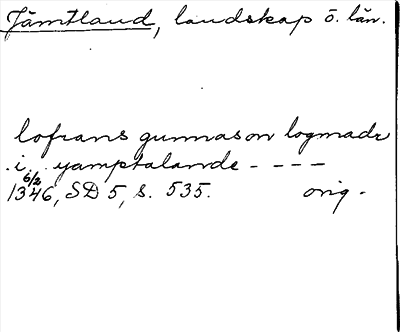 Jämtland, landskap o. län.
lofrans gunnason logmadr
i yamptalande - - - -
6/2
1346, SD 5, s. 535. orig.